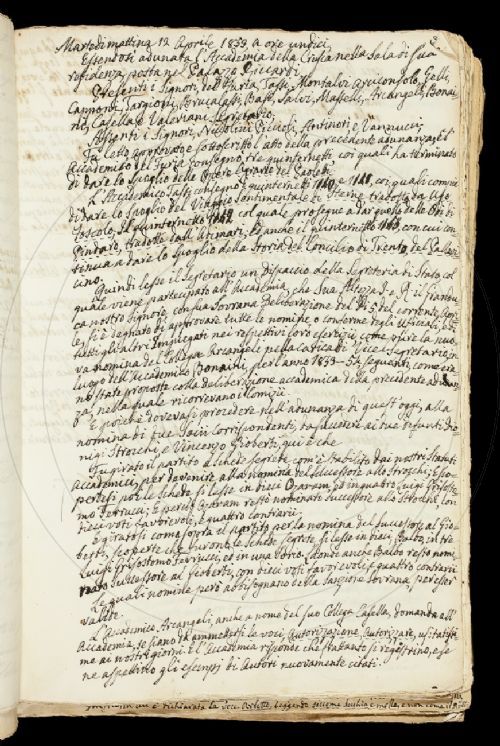 Martedì mattina 12 Aprile 1853, a ore undici
Essendosi adunata l'Accademia della Crusca nella Sala di sua
residenza, posta nel Palazzo Riccardi
Presenti i Signori, Del Furia, Tassi, Montalvi Arciconsolo, Gelli,
Capponi, Targioni, Brucalassi, Basi, Salvi, Maselli, Arcangeli, Bonai-
ni, Casella e Valeriani Segretario;
Assenti i Signori, Niccolini, Piccioli, Antinori, e Vannucci,
Fu letto approvato e sottoscritto l'atto della precedente adunanza, e l'
Accademico Del Furia consegnò tre quinternetti coi quali ha terminato
di dare lo spoglio delle Opere
L'Accademico Tassi consegnò i quinternetti 1140 e 1141, coi quali comin-
ciò a dare lo spoglio del Viaggio Sentimentale di Sterne tradotto da Ugo
Foscolo, il quinternetto col quale prosegue a dar quello delle Odi di
Pindaro, tradotte dall'Adimari, ed anche il quinternetto con cui con-
tinua a dare lo spoglio della Storia del Concilio di Trento, del Pallavi-
cino.
Quindi lesse il Segretario un dispaccio della Segreteria di Stato col
quale viene partecipato all'Accademia, che Sua Altezza I. e R. il Grandu-
ca nostro Signore con sua Sovrana Deliberazione del dì 5 del corrente Apri-
le, si è degnato di approvare tutte le nomine, o conferme negli Ufiziali, e di
tutti gli altri Impiegati nei rispettivi loro esercizi come pure la nuo-
va nomina del Collega Arcangeli nella carica di Vice Segretario, in
luogo dell'Accademico Bonaini, per l'anno 1853-54 seguenti, come era-
no state proposte colla deliberazione accademica della precedente adunan-
za, nella quale ricorrevano i Comizi.
E poichè dovevasi procedere nell'adunanza di quest'oggi, alla
nomina di due Soci Corrispondenti, ta successori ai due defunti Dio-
nigi Strocchi, e Vincenzo Gioberti, qui è che
Fu girato il partito a schede segrete com'è stabilito dai nostri Statuti
accademici, per devenire alla nomina del successore allo Strocchi; e sco-
pertesi poi le schede si lesse in dieci Ozanam, ed in quattro Luigi Grisosto-
mo Ferrucci; e perciò Ozanam restò nominato successore allo Strocchi, con
dieci voti favorevoli, e quattro contrarii.
E giratosi come sopra il partito per la nomina del successore al Gio-
berti, scoperte che furono le schede segrete, si lesse in dieci, Balbo, in tre
Luigi Grisostomo Ferrucci, ed in una Poreo, laonde anche Balbo restò nomi-
nato successore al Gioberti, con dieci voti favorevoli e quattro contrarii.
Le quali nomine però abbisognano della sanzione Sovrana, per esser
valide.
L'Accademico Arcangeli, anche a nome del suo Collega Casella, domanda all'
Accademia, se siano da ammettersi le voci, Autorizzazione, Autorizzare, usitatissi-
me ai nostri giorni. E l'Accademia risponde che frattanto si registrino, e se
ne aspettino gli esempj di Autori nuovamente citati.
è richiamata la voce leggendo